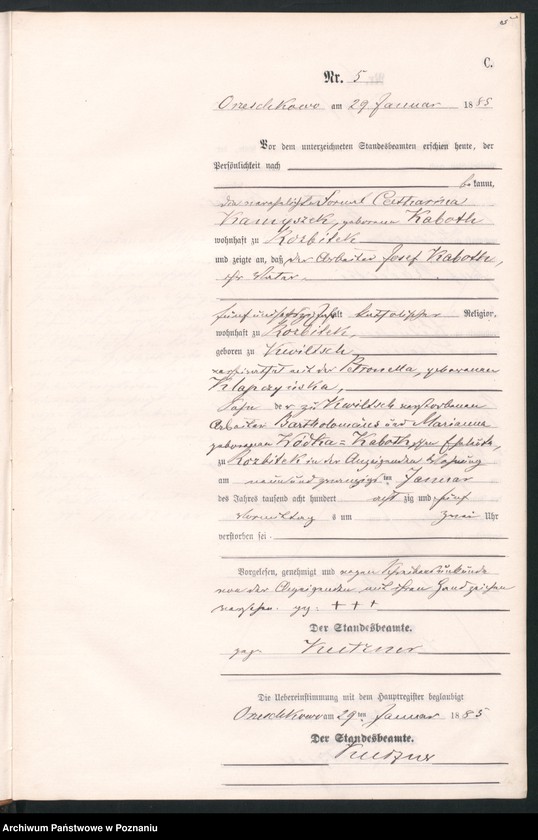 C.
Nr. 5
Orzeschkowo am 29 Januar 1885
Vor dem unterzeichneten Standesbeamten erschien heute, der
Persönlichkeit nach
bekannt,
die verehelichte Catharina
Kamyszek, geborene Kaboth
wohnhaft zu Rozbitek
und zeigte an, daß der Arbeiter Josef Kaboth,
ihr Vater,
fünf und Jahr alt katholischer Religion,
wohnhaft zu Rozbitek,
geboren zu Kwiltsch,
verheirathet mit der Petronella, geborenen
Klapczynska,
Sohn der zu Kwiltsch verstorbenen
Arbeiter Bartholomäus und Marianna
geborenen Wodka = Kaboth'schen Eheleute,
zu Rozbitek in der Anzeigenden Wohnung
am neunundzwanzigsten Januar
des Jahres tausend acht hundert achtzig und fünf
Vormittags um zwei Uhr
verstorben sei.
Vorgelesen, genehmigt und wegen Schreibensunkunde
von der Anzeigenden mit ihren Handzeichen
versehen. gez: + + +
Der Standesbeamte.
gez.
Die Uebereinstimmung mit dem Hauptregister beglaubigt
Orzeschkowo am 29ten Januar 1885
Der Standesbeamte.
Archiwum Państwowe w Poznaniu